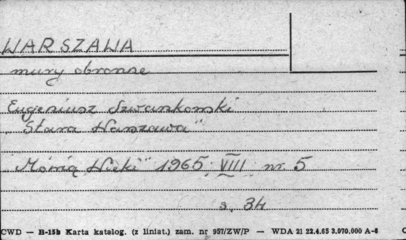 WARSZAWA
mury obronne
Eugeniusz Szwankowski
„Stara Warszawa”
„Mówią Wieki” 1965 VIII nr. 5
s. 34
CWD — B-15b Karta katalog. (z liniat.) zam. nr 957/ZW/P — WDA 21 22.4.65 2.070.000 A-6